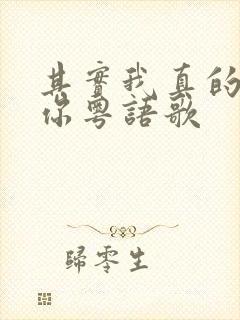 其實我真的
你粵語歌
歸零生